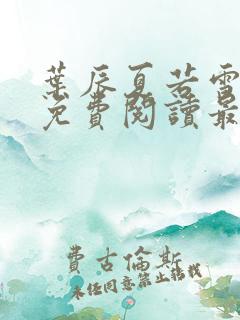 葉辰夏若雪
免費閱讀最
費古倫斯
未經同意禁止轉載